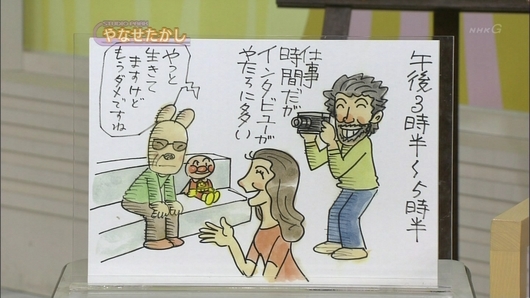 NHK G
やなせたかし
午後3時半〜5時半
仕事
時間だが
インタビューが
やたらに多い
やっと
生きて
ますけど
もうダメですね